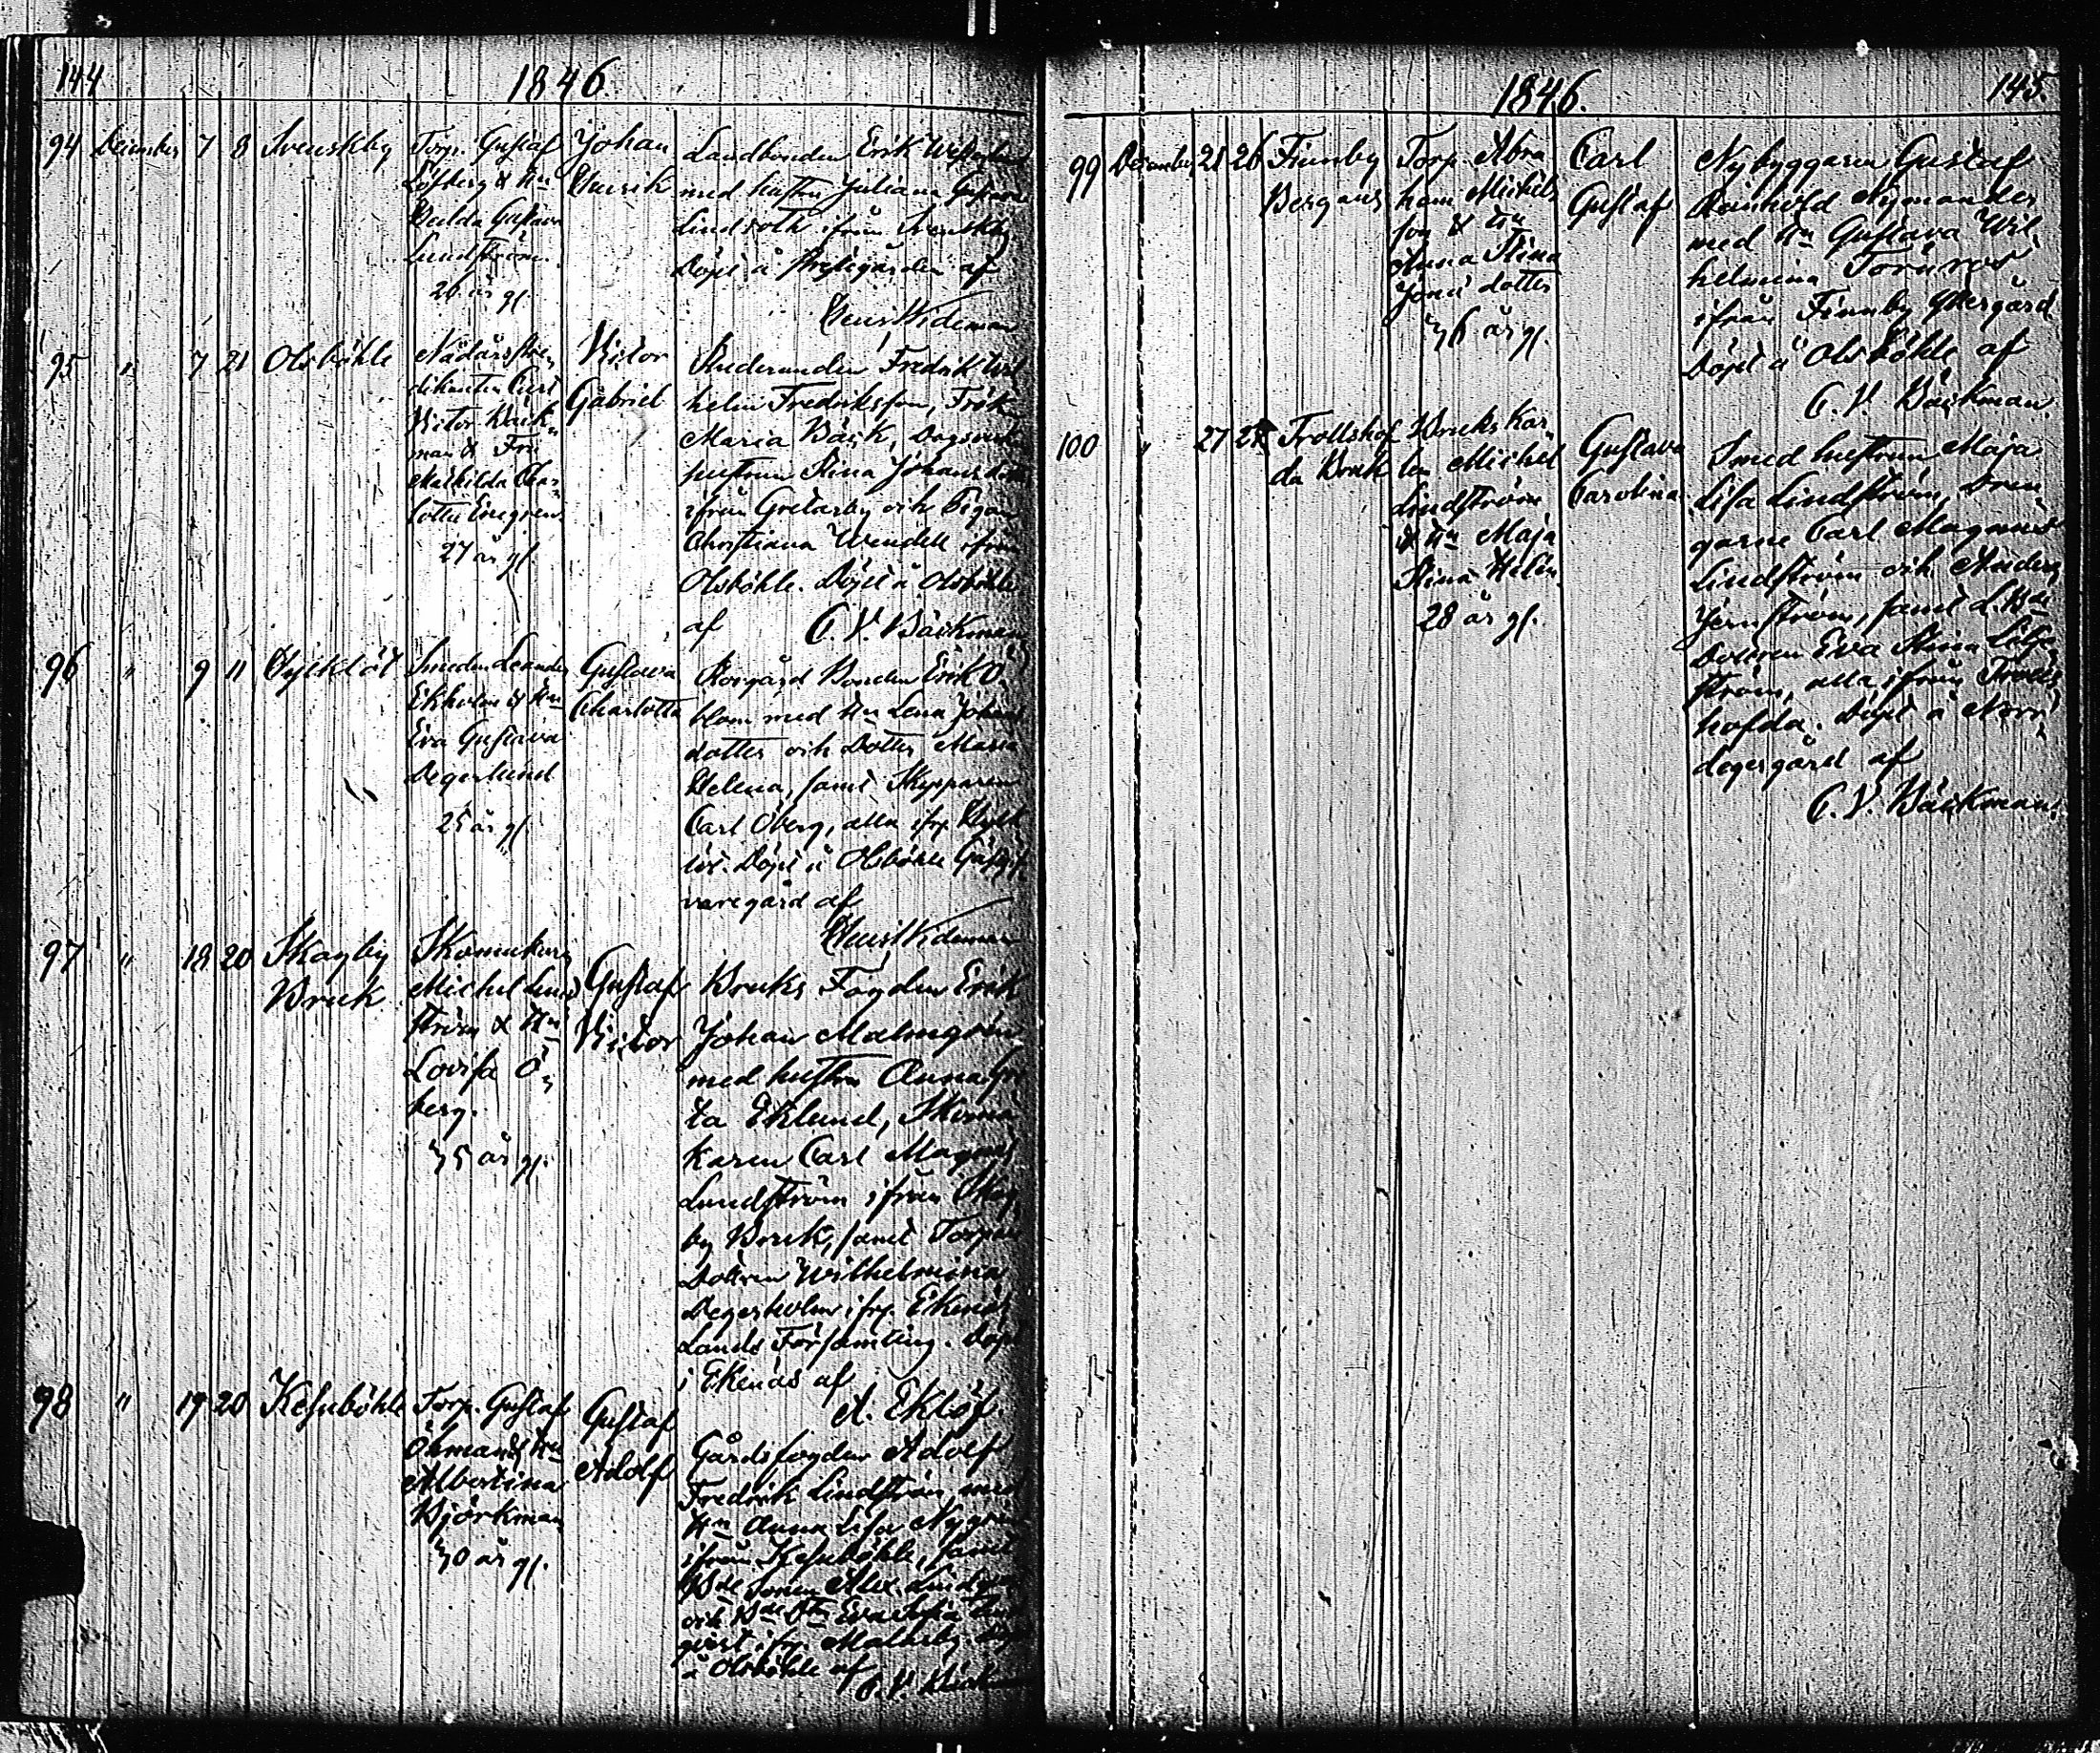 144
1846.
94 December 7 8 Svenskby
Torp. Gustaf
Löfberg & Hu
Hulda Gustava
Lundström.
26 år gl.
Johan
Henrik
Landbonden Erik
med hustru Juliana Gustava
Lindroth ifrån Svenskby
Döpt å Prestgården af
Wideman
95 " 7 21 Olsböhle
Carl
Victor Bäck„
man & Fru
Mathilda Char„
lotta Enegren.
27 år gl.
Victor
Gabriel
Studeranden Fredrik Wil
helm Fredriksson, Frök.
Maria Bäck,
hustrun Stina Johansdotter
ifrån Gretarby och Pigan
Christiana Wendell ifrån
Olsböhle. Döpt å Olsböhle
af C. V. Bäckman
96 " 9 11
Smeden Leander
Ekholm & Hu
Eva Gustava
Degerlund
25 år gl.
Gustava
Charlotta
Bonden Erik Ö„
blom med Hu Lena Johans
dotter och Dotter Maria
Helena, samt Skepparen
Carl Öberg, alla ifr.
Döpt å Olsböhle Gästgif
varegård af
Wideman
97 " 18 20 Skogby
Bruk
Skomakar„
Michel Lund
ström & Hu
Lovisa Ö„
berg.
45 år gl.
Gustaf
Victor
Bruks Fogden Erik
Johan Malmgren
med hustru Anna Gre
ta Eklund, Skoma
karen Carl Magnus
Lundström ifrån Skog
by Bruk, samt Torpare
Dottren Wilhelmina
Degerholm ifr. Ekenäs
Lands Församling. Döpt
i Ekenäs af
A. Eklöf
98 " 19 20
Torp. Gustaf
Öhman & Hu
Albertina
Björkman
40 år gl.
Gustaf
Adolf
Gårdsfogden Adolf
Fredrik Lindström med
Hu Anna Lisa Nygren
ifrån samt
Sonen Alex.
och Eva Sofia
qvist ifr. Malmby
å Olsböhle af
C. V. Bäckman
1846.
145.
99 December 21 26 Finnby
Bergans
Torp. Abra
ham Michels
son & Hu
Anna Stina
Jons dotter
46 år gl.
Carl
Gustaf
Nybyggaren Gustaf
Reinhold Nymander
med Hu Gustava Wil
helmina Törnroos
ifrån Finnby Yttergård
Döpt å Olsböhle af
C. V. Bäckman.
100 " 27 27 Trollshof
da Bruk
Bruks Kar„
len Michel
Lindström
& Hu Maja
Stina Helin
28 år gl.
Gustava
Carolina
Smed hustrun Maja
Lisa Lindström, Dren„
garne Carl Magnus
Lindström och Anders
Jernström, samt L. Bde
Dottren Eva Stina Lilje„
ström, alla ifrån Trolls„
hofda. Döpt å Norr„
degergård af
C. V. Bäckman.